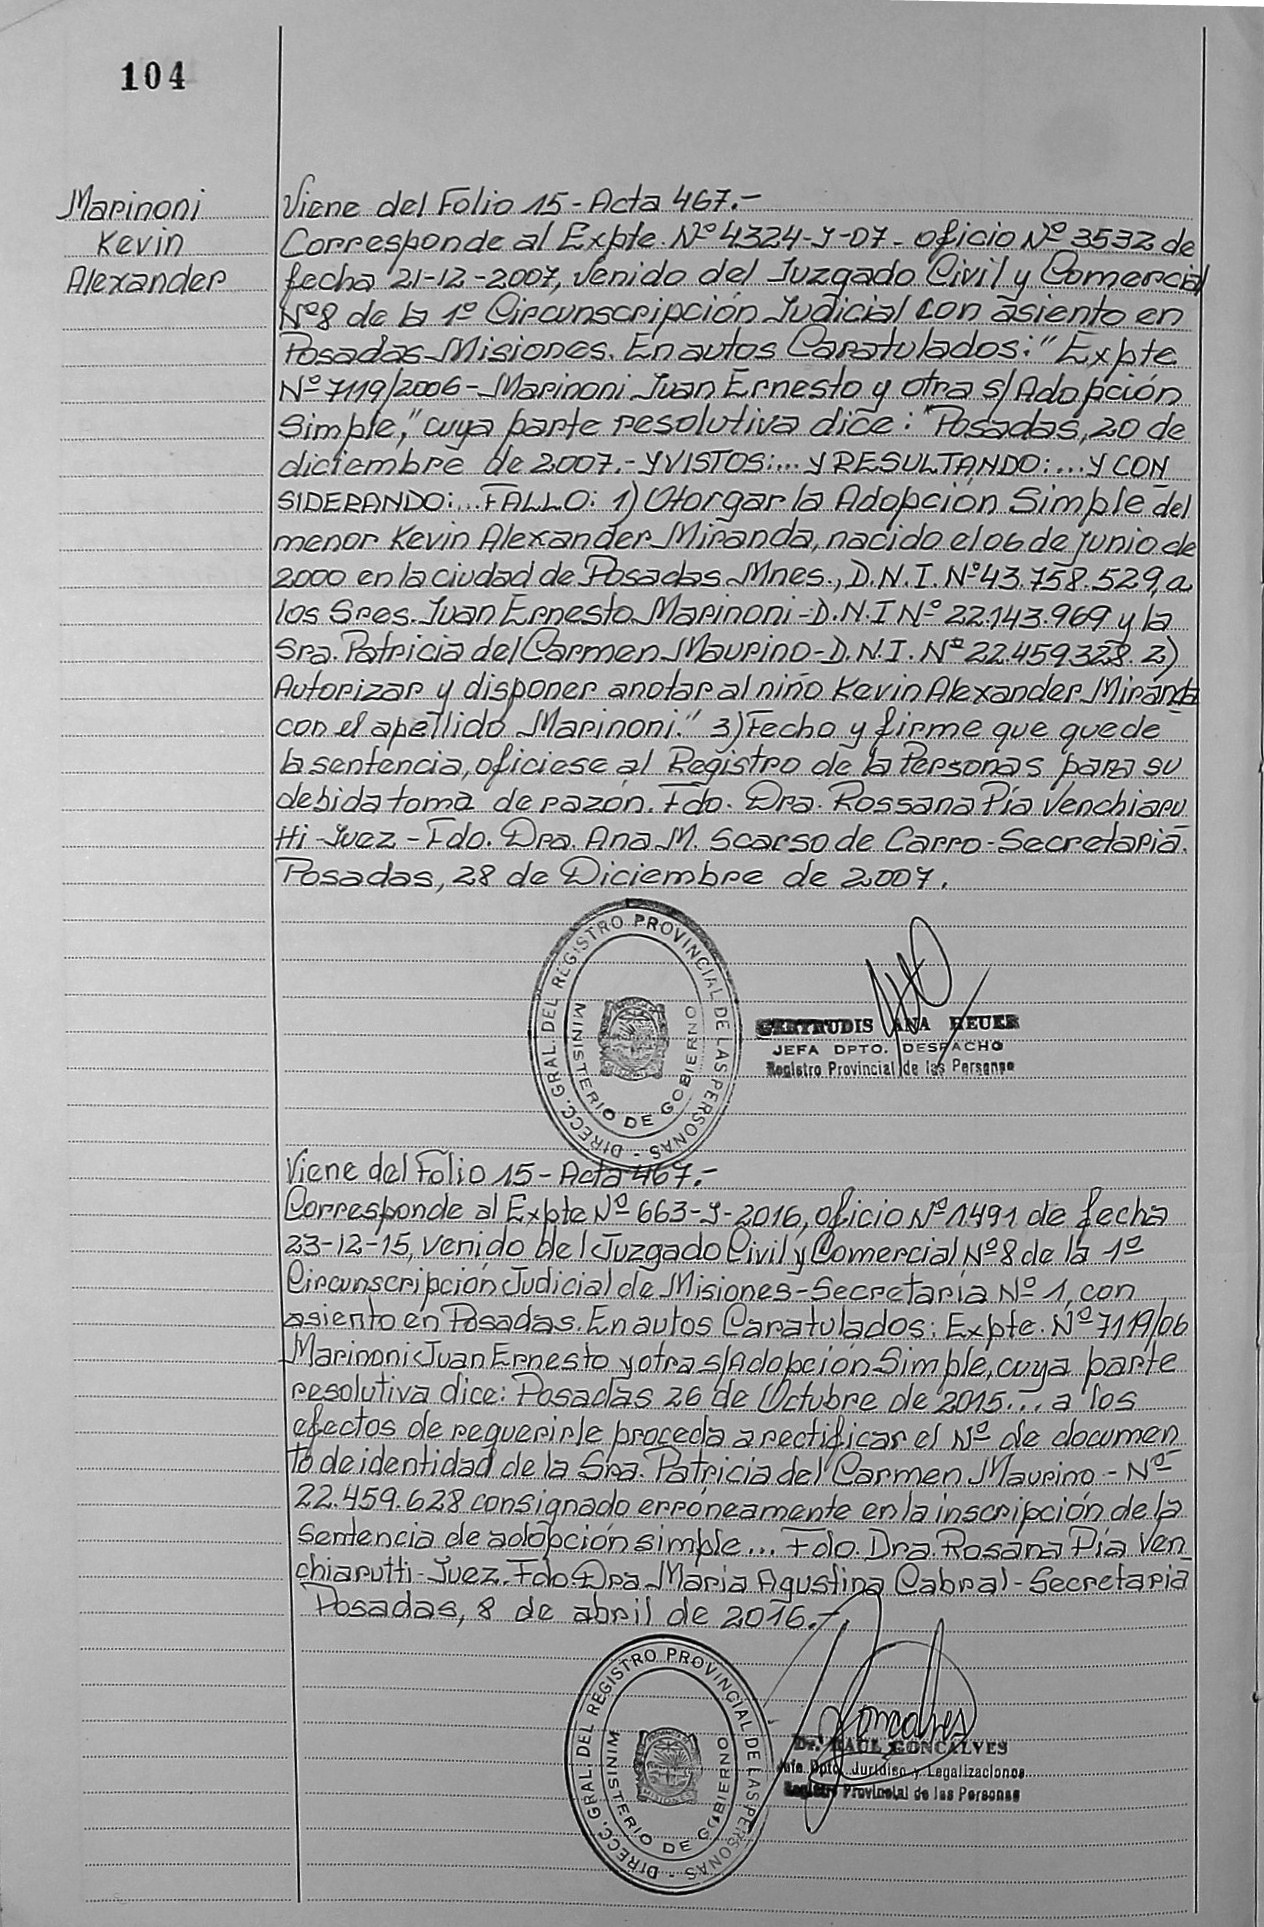 104
Marinoni
Kevin
Alexander
Viene del Folio 15 - Acta 467.-
Corresponde al Expte. Nº 4324-J-07 - oficio Nº 3532 de
fecha 21-12-2007, venido del Juzgado Civil y Comercial
Nº8 de la 1º Circunscripción Judicial con asiento en
Posadas Misiones. En autos Caratulados: "Expte
Nº 7119/2006 - Marinoni Juan Ernesto y otra s/Adopción
Simple," cuya parte resolutiva dice: "Posadas, 20 de
diciembre de 2007.- Y VISTOS:... Y RESULTANDO:... Y CON
SIDERANDO:... FALLO: 1) Otorgar la Adopción Simple del
menor Kevin Alexander Miranda, nacido el 06 de junio de
2000 en la ciudad de Posadas Mnes., D.N.I. Nº 43.758.529, a
los Sres. Juan Ernesto Marinoni - D.N.I Nº 22.143.969 y la
Sra. Patricia del Carmen Maurino - D.N.I. Nº 22.459.328. 2)
Autorizar y disponer anotar al niño Kevin Alexander Miranda
con el apellido Marinoni." 3) Fecho y firme que quede
la sentencia, ofíciese al Registro de la Personas para su
debida toma de razón. Fdo. Dra. Rossana Pía Venchiaru
tti - Juez - Fdo. Dra. Ana M. Scarso de Carro - Secretaria.
Posadas, 28 de Diciembre de 2007.
DIRECC. GRAL. DEL REGISTRO PROVINCIAL DE LAS PERSONAS -
MINISTERIO DE GOBIERNO
GERTRUDIS ANA HEUER
JEFA DPTO. DESPACHO
Registro Provincial de las Personas
Viene del Folio 15 - Acta 467.-
Corresponde al Expte Nº 663-J-2016, oficio Nº 1491 de fecha
23-12-15, venido del Juzgado Civil y Comercial Nº 8 de la 1º
Circunscripción Judicial de Misiones - Secretaría Nº 1, con
asiento en Posadas. En autos Caratulados: Expte. Nº 7119/06
Marinoni Juan Ernesto y otra s/Adopción Simple, cuya parte
resolutiva dice: Posadas 26 de Octubre de 2015... a los
efectos de requerirle proceda a rectificar el Nº de documen
to de identidad de la Sra. Patricia del Carmen Maurino - Nº
22.459.628 consignado erróneamente en la inscripción de la
sentencia de adopción simple... Fdo. Dra. Rosana Pía Ven
chiarutti - Juez. Fdo Dra Maria Agustina Cabral - Secretaria
Posadas, 8 de abril de 2016.-
DIRECC. GRAL. DEL REGISTRO PROVINCIAL DE LAS PERSONAS -
MINISTERIO DE GOBIERNO
Goncalves
Dr. RAUL GONCALVES
Jefe Dpto. Jurídico y Legalizaciones
Registro Provincial de las Personas